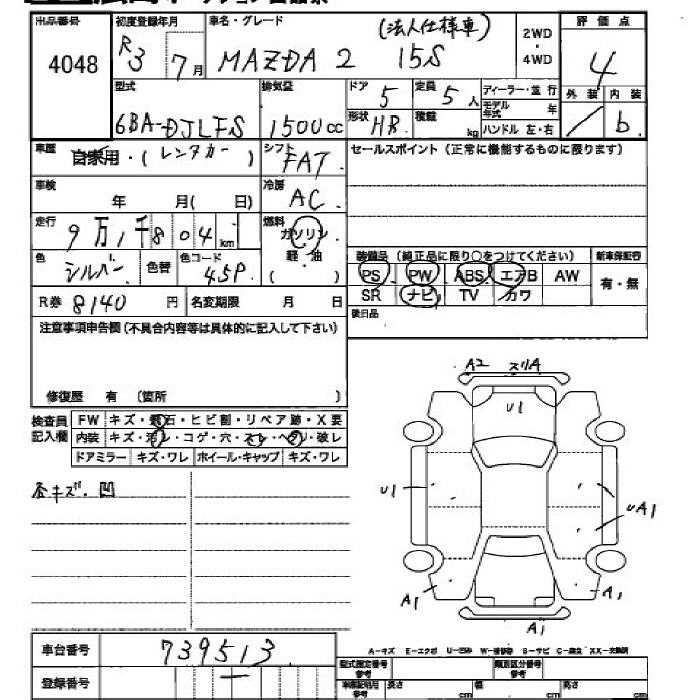 出品番号 初度登録年月 車名・グレード (法人仕様車) 2WD・4WD 評価点
4048 R3 7月 MAZDA 2 15S 4
型式 排気量 ドア 定員 ディーラー・並行 外装 内装
6BA-DJLFS 1500cc 5 5人 モデル年式 年 / b
形状 HB 積載 kg ハンドル 左・右
車歴 自家用・(レンタカー) シフト FAT セールスポイント (正常に機能するものに限ります)
車検 年 月( 日) 冷房 AC
走行 9万1千804km 燃料 ガソリン
色 シルバー 色替 色コード 45P 軽・油 ( )
装備品 (純正品に限り○をつけてください) 新車保証書
PS PW ABS エアB AW 有・無
SR ナビ TV カワ
R券 8140円 名変期限 月 日 後日品
注意事項申告欄 (不具合内容等は具体的に記入して下さい)
修復歴 有 (箇所 )
検査員記入欄 FW キズ・飛石・ヒビ割・リペア跡・X要
内装 キズ・汚レ・コゲ・穴・スレ・ヘタリ・破レ
ドアミラー キズ・ワレ ホイール・キャップ キズ・ワレ
A2 スリA
U1
各キズ.凹
U1
UA1
A1
A1
A1
A-キズ E-エクボ U-凹み W-補修跡 S-サビ C-腐食 XX-交換済
車台番号 739513
型式指定番号 参考 類別区分番号 参考
登録番号 ー
車検証記入 参考 長さ cm 幅 cm 高さ cm